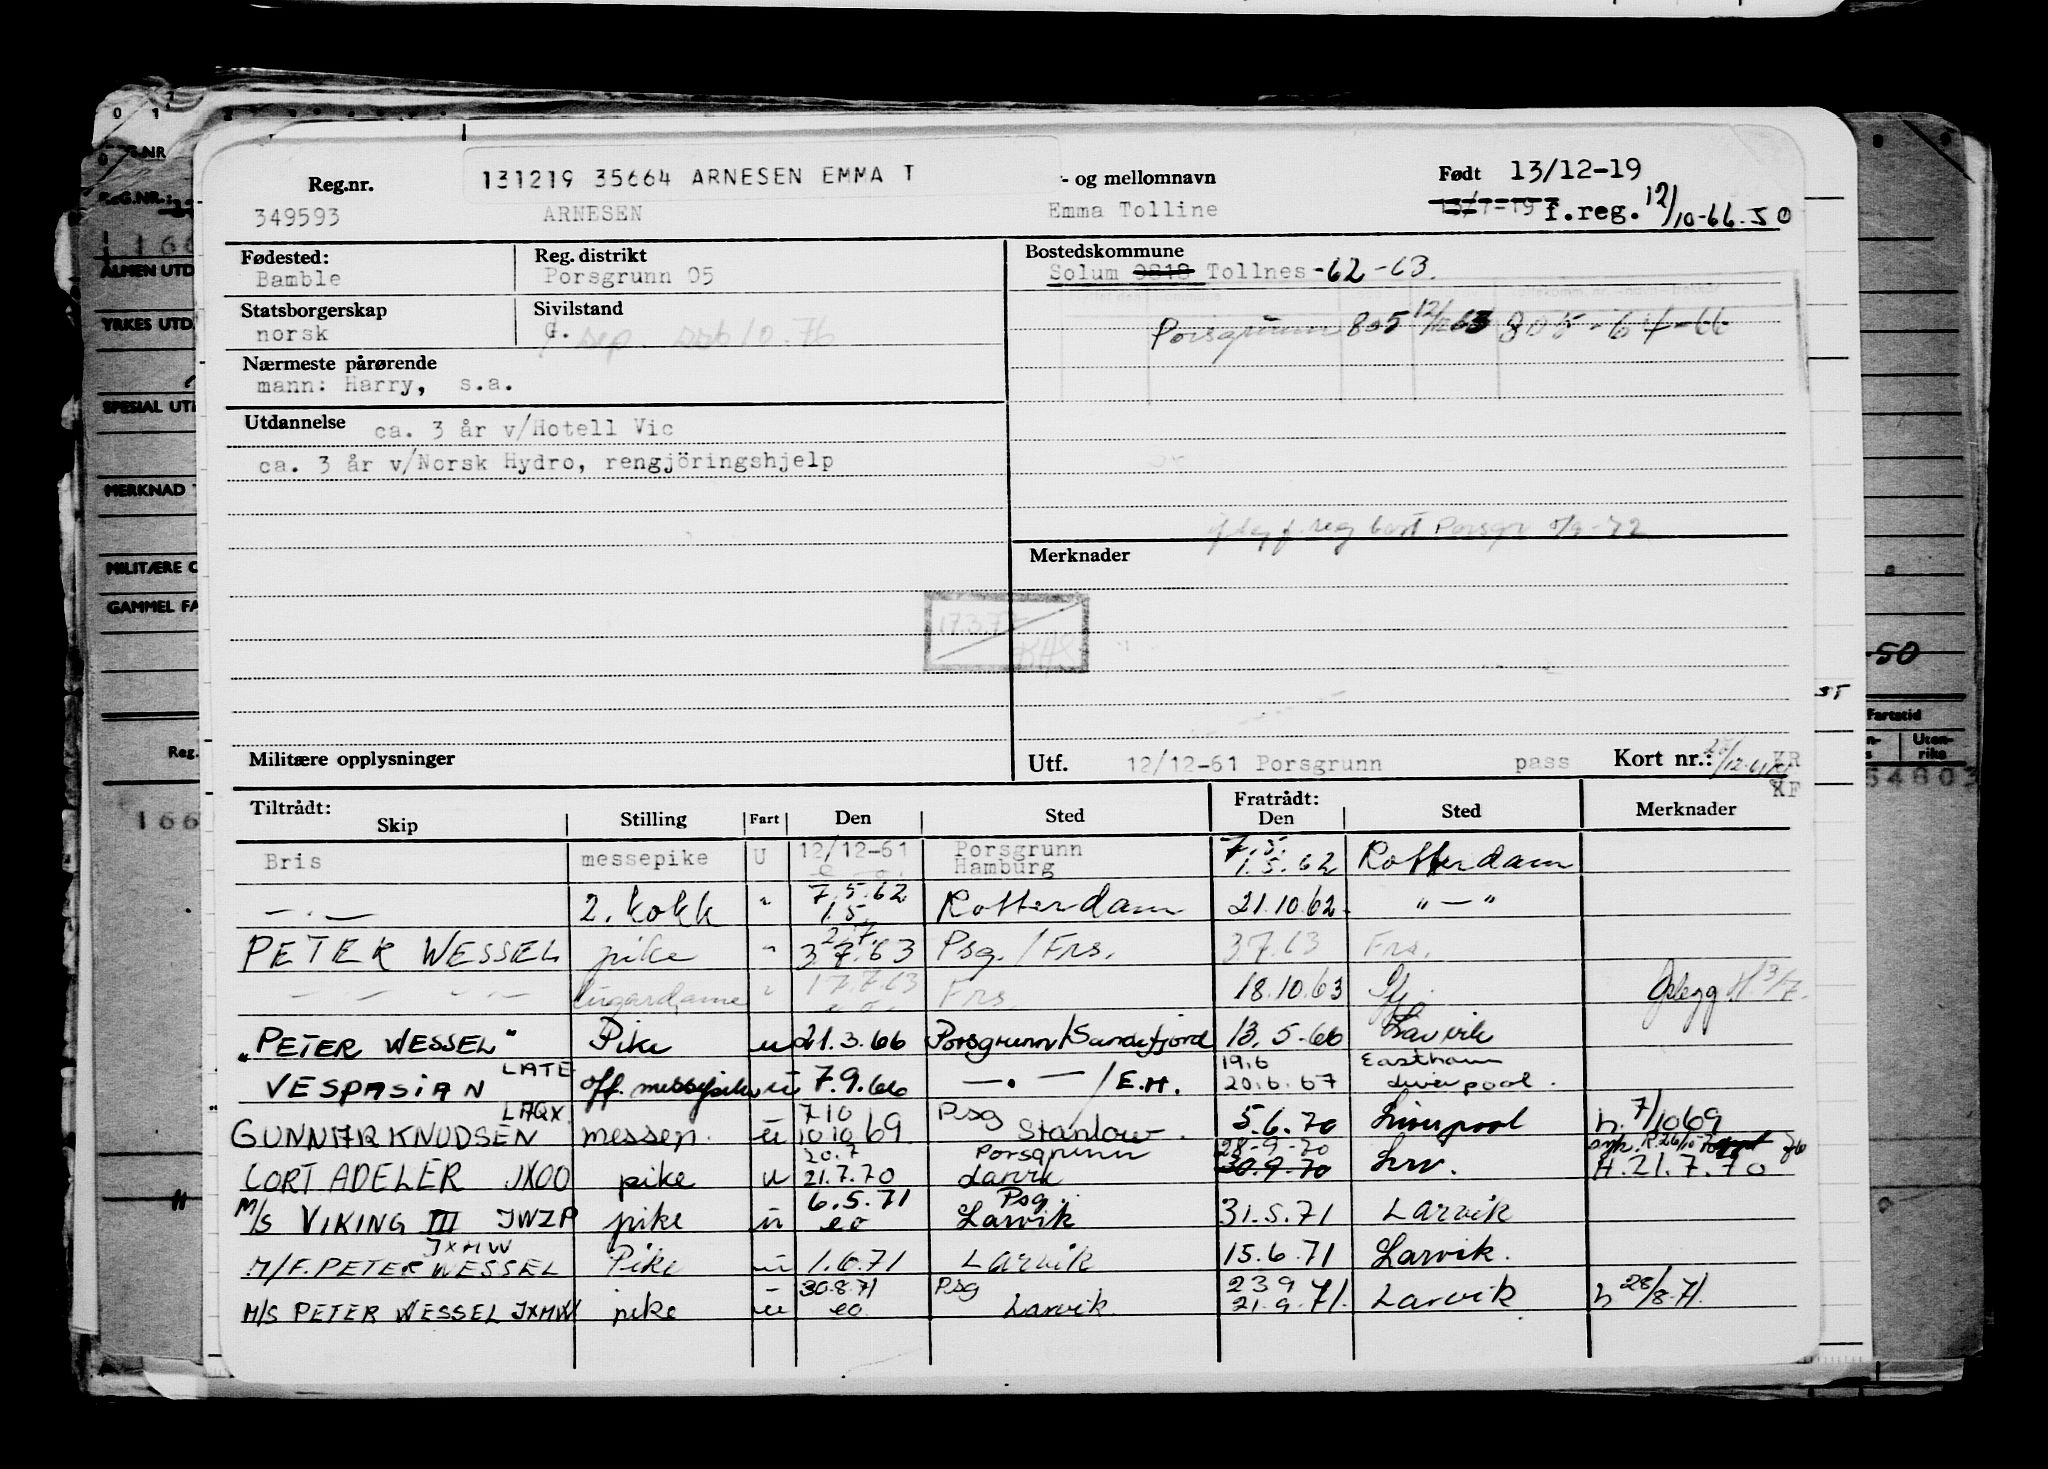 Reg.nr. 131219 35664 ARNESEN EMMA T - og mellomnavn Født 13/12-19
349593 ARNESEN Emma Tolline 13/7-19 f.reg. 12/10-66. 50
Fødested: Reg. distrikt Bostedskommune
Bamble Porsgrunn 05 Solum 0818 Tollnes -62-63.
Statsborgerskap Sivilstand
norsk G. sep. 10.76 Porsgrunn 805 12/ 63 805-64-66
Nærmeste pårørende
mann: Harry, s.a.
Utdannelse ca. 3 år v/Hotell Vic
ca. 3 år v/Norsk Hydro, rengjöringshjelp
f. reg bort Porsgr
Merknader
17.3.7
Militære opplysninger Utf. 12/12-61 Porsgrunn pass Kort nr.: KR
KF
Tiltrådt: Skip Stilling Fart Den Sted Fratrådt: Den Sted Merknader
Bris messepike U 12/12-61 Porsgrunn Hamburg 7.5. 1.5.62 Rotterdam
— . — 2. kokk " 7.5.62 1.5. Rotterdam 21.10.62 " — "
PETER WESSEL pike " 2.7. 3.7.63 Psg./Frs. 3.7.63 Frs.
— — — — lugardame " 17.7.63 Frs 18.10.63
"PETER WESSEL" Pike u 21.3.66 Porsgrunn/Sandefjord 13.5-66 Larvik
VESPASIAN LATE off. messepike u 7.9.66 — . — /E.H. 19.6 20.6.67 Eastham Liverpool.
GUNNAR KNUDSEN LAQX messep. u 7 10 10 10 69 Psg Stanlow. 5.6.70 Liverpool h. 7/10 69
CORT ADELER JXOO pike u 20.7 21.7.70 Porsgrunn Larvik 28-9-70 30.9.70 Lrv. H. 21.7.70
M/S VIKING III JWZP pike u 6.5.71 eo Psg Larvik 31.5.71 Larvik
M/F. PETER WESSEL JXMW Pike u 1.6.71 Larvik 15.6.71 Larvik.
M/S PETER WESSEL JXMW pike u 30.8.71 eo. Psg Larvik 23 9 21.9.71. Larvik h 28/8-71.
REG.NR.:
166
ALMEN UTD
YRKES UTD
SPESIAL UTD
MERKNAD
MILITÆRE O
GAMMEL FA
Reg.
166
50
Fartstid
Uten-
riks
54803